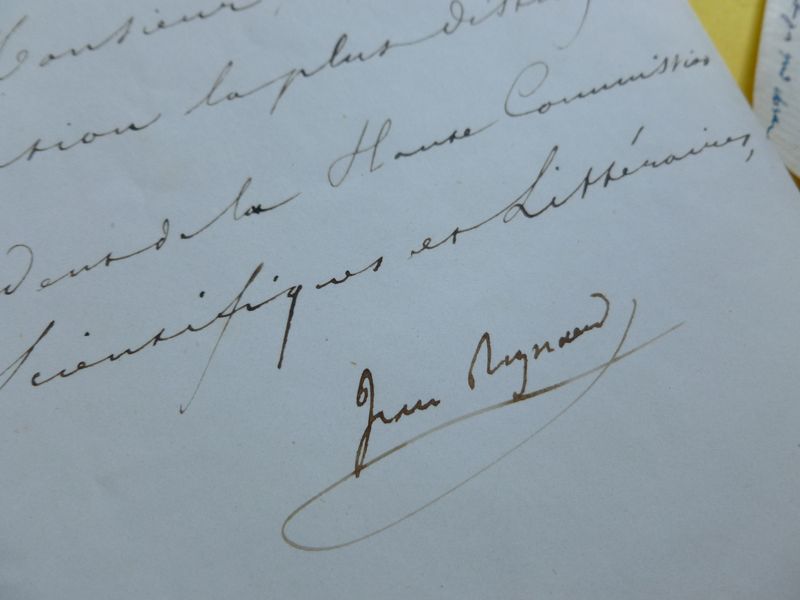 Monsieur
ation la plus disting
dent de la Haute Commission
Scientifiques et Littéraires,
Jean Reynaud